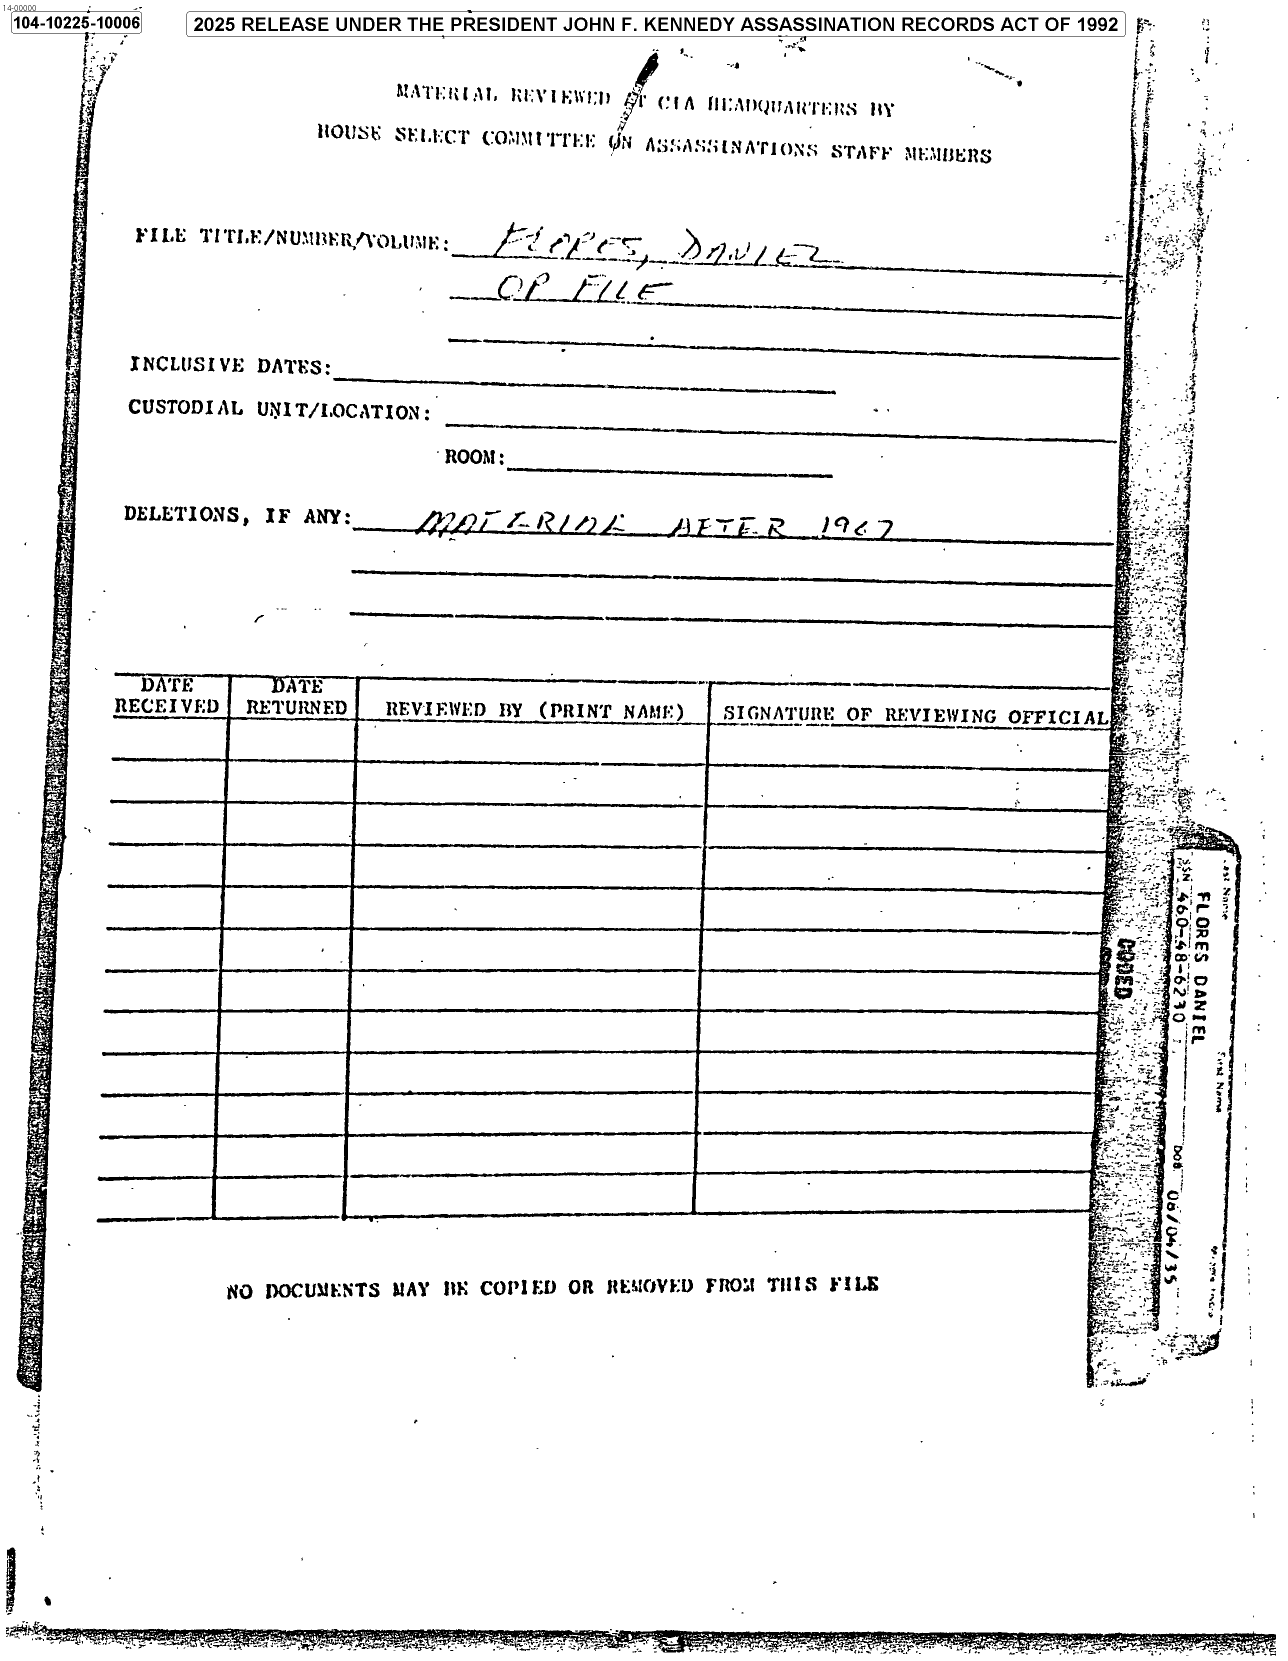 14-00000
104-10225-10006
2025 RELEASE UNDER THE PRESIDENT JOHN F. KENNEDY ASSASSINATION RECORDS ACT OF 1992
MATERIAL REVIEWED AT CIA HEADQUARTERS BY
HOUSE SELECT COMMITTEE ON ASSASSINATIONS STAFF MEMBERS
FILE TITLE/NUMBER/VOLUME: FLORES, DANIEL
OP FILE
INCLUSIVE DATES:
CUSTODIAL UNIT/LOCATION:
ROOM:
DELETIONS, IF ANY: MATERIAL AFTER 1967
DATE RECEIVED
DATE RETURNED
REVIEWED BY (PRINT NAME)
SIGNATURE OF REVIEWING OFFICIAL
NO DOCUMENTS MAY BE COPIED OR REMOVED FROM THIS FILE
CODED
Last Name First Name
FLORES DANIEL
SSN 460-48-6230 DOB 08/04/35